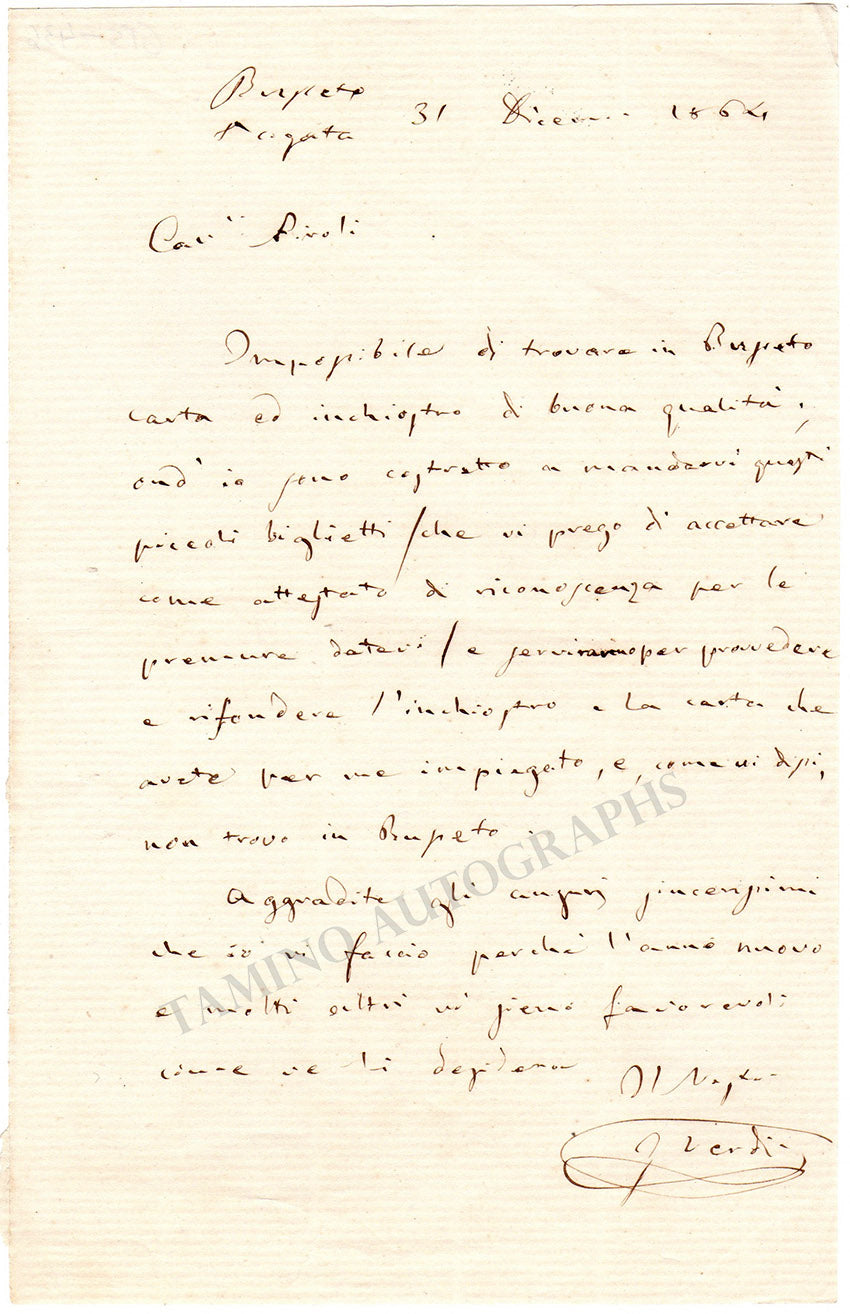 Busseto
S Agata 31 Dicem 1864
Car Piroli
Impossibile di trovare in Busseto
carta ed inchiostro di buona qualità;
ond' io sono costretto a mandarvi questi
piccoli biglietti /che vi prego di accettare
come attestato di riconoscenza per le
premure datevi/ e serviranno per provvedere
e rifondere l'inchiostro e la carta che
avete per me impiegato, e, come vi dissi,
non trovo in Busseto.
Aggradite gli augurj sincerissimi
che io vi faccio perché l'anno nuovo
e molti altri vi sieno favorevoli
come ve li desidera Il Vostro
G Verdi
TAMINO AUTOGRAPHS